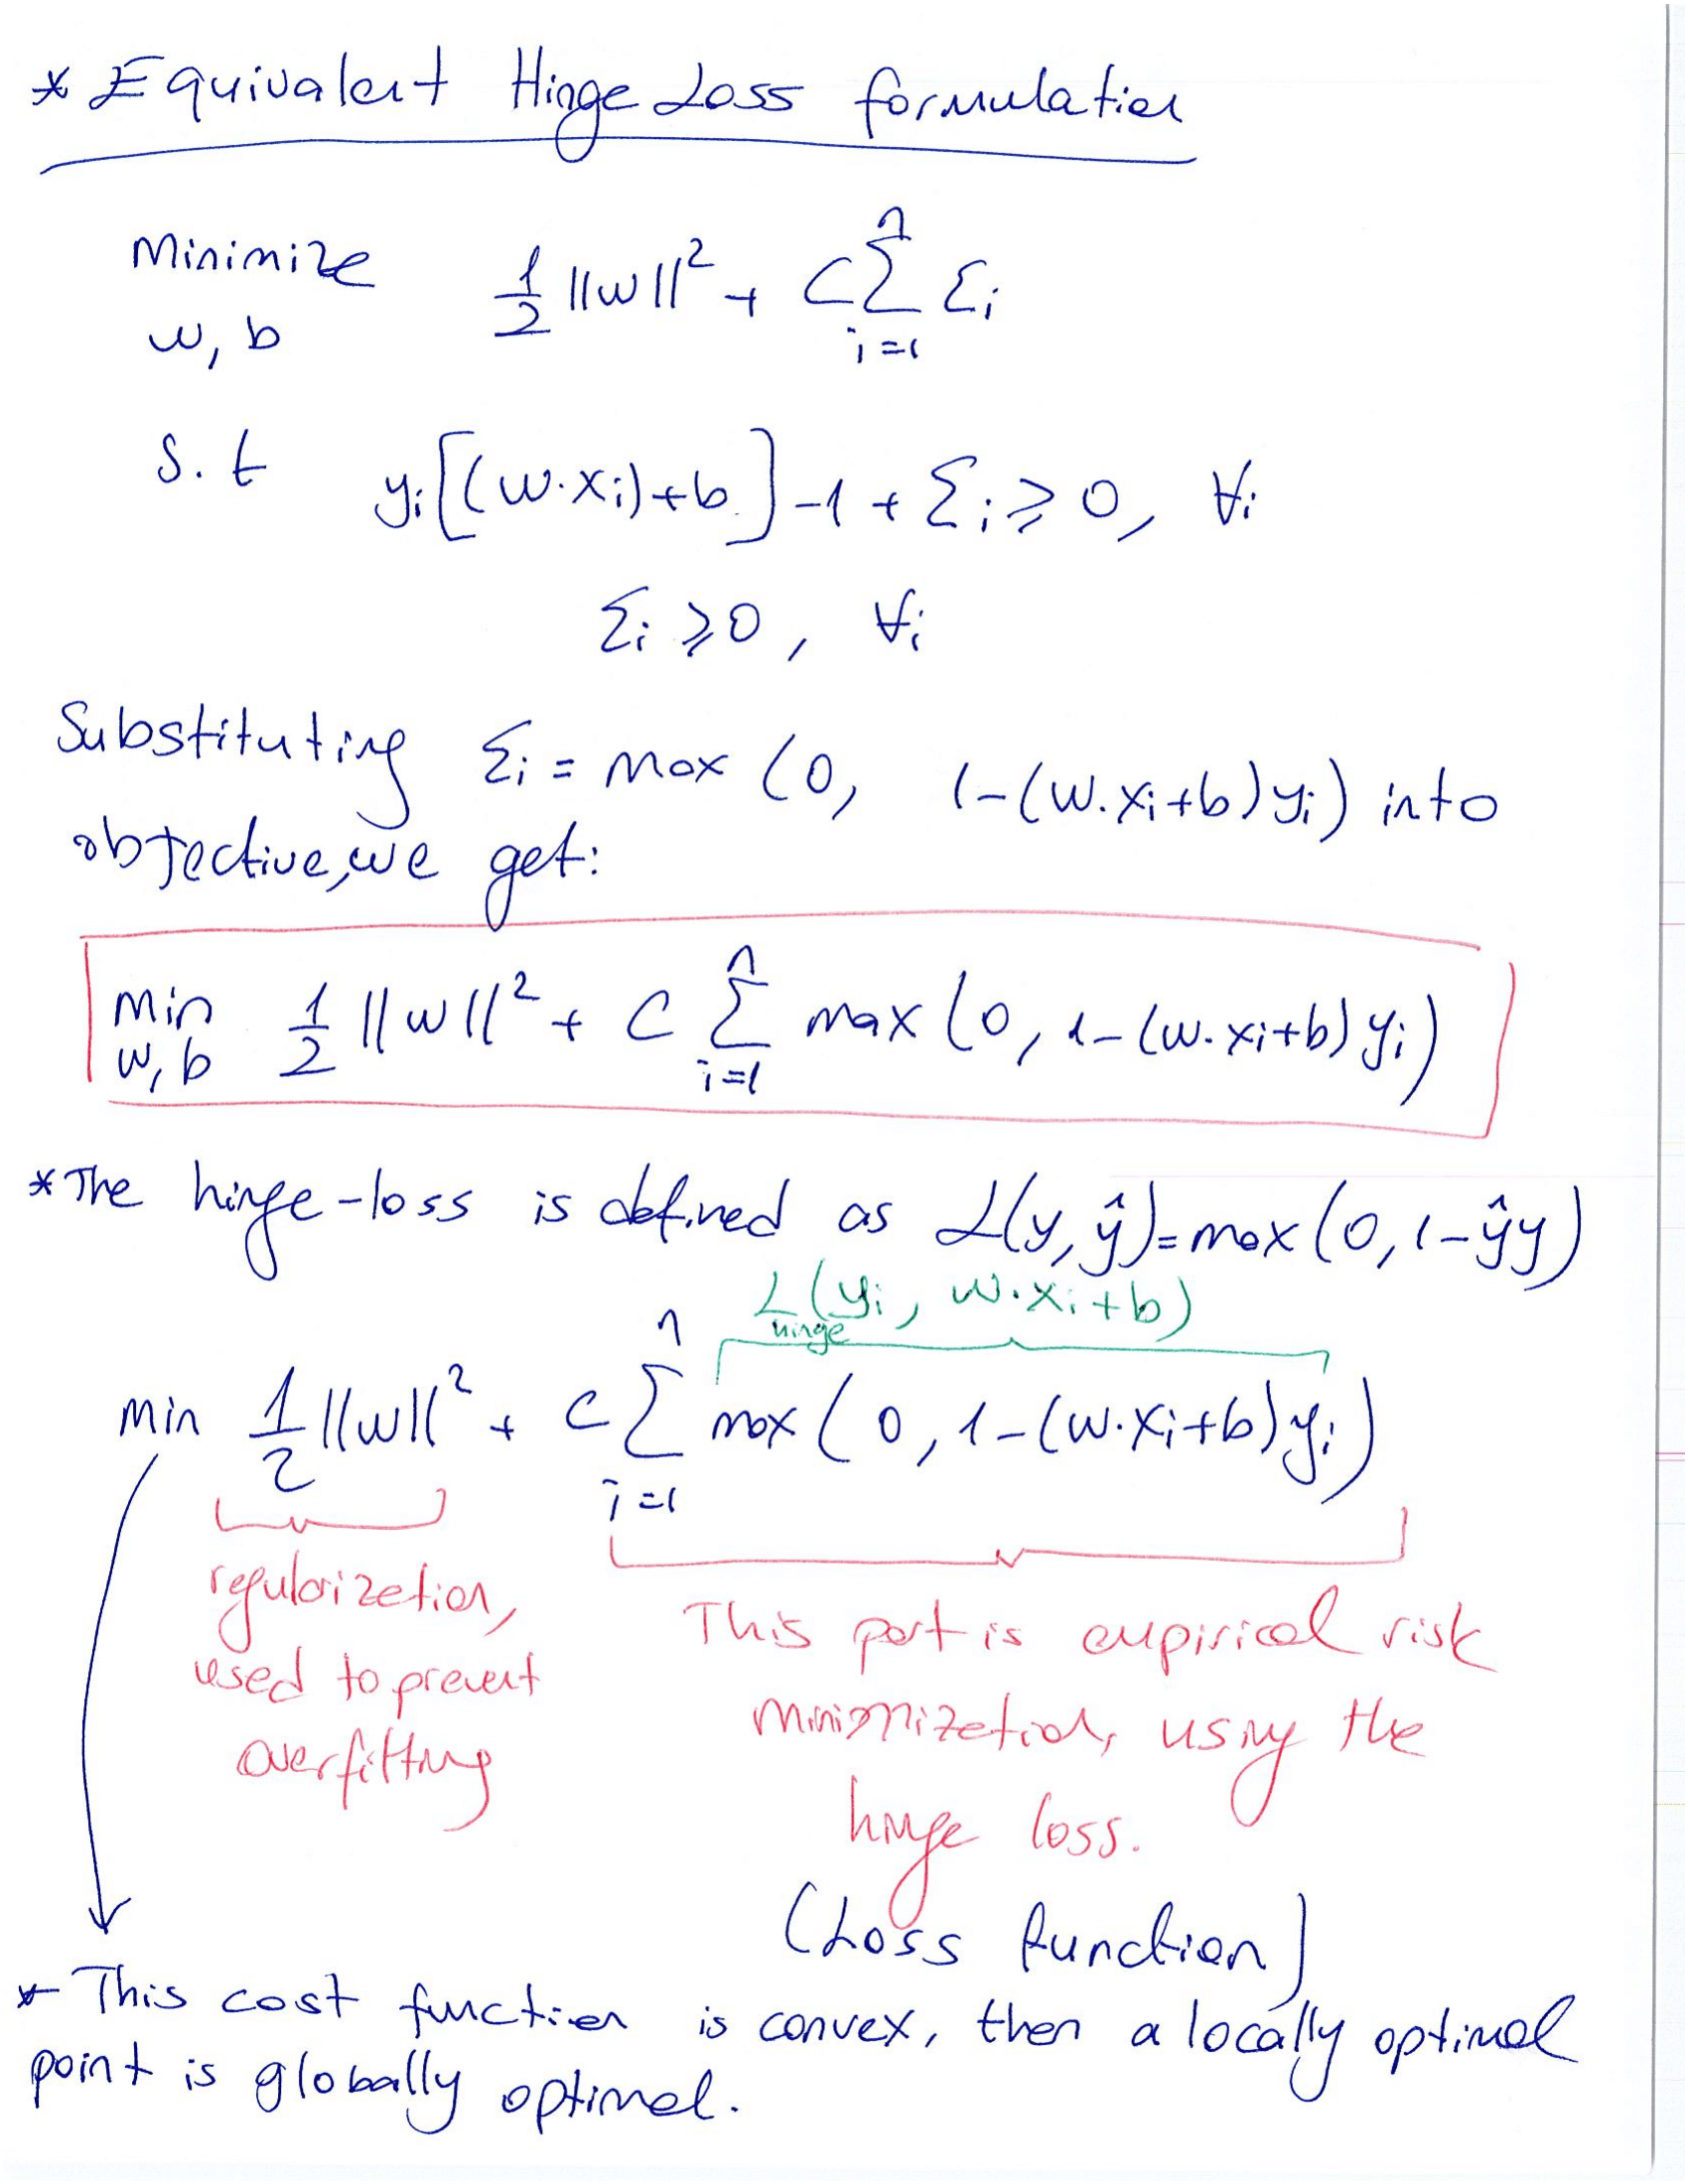 * Equivalent Hinge Loss formulation
Minimize 1/2 ||w||² + C Σ_{i=1}^{n} ξ_i
w, b
s.t y_i[(w·x_i)+b] -1 + ξ_i ≥ 0, ∀i
ξ_i ≥ 0, ∀i
Substituting ξ_i = max (0, 1-(w.x_i+b)y_i) into
objective, we get:
min 1/2 ||w||² + C Σ_{i=1}^{n} max (0, 1-(w.x_i+b) y_i)
w, b
* The hinge-loss is defined as L(y, ŷ) = max (0, 1-ŷy)
L_hinge(y_i, w.x_i+b)
min 1/2 ||w||² + C Σ_{i=1}^{n} max (0, 1-(w.x_i+b) y_i)
regularization,
used to prevent
overfitting
This part is empirical risk
minimization, using the
hinge loss.
(Loss function)
* This cost function is convex, then a locally optimal
point is globally optimal.